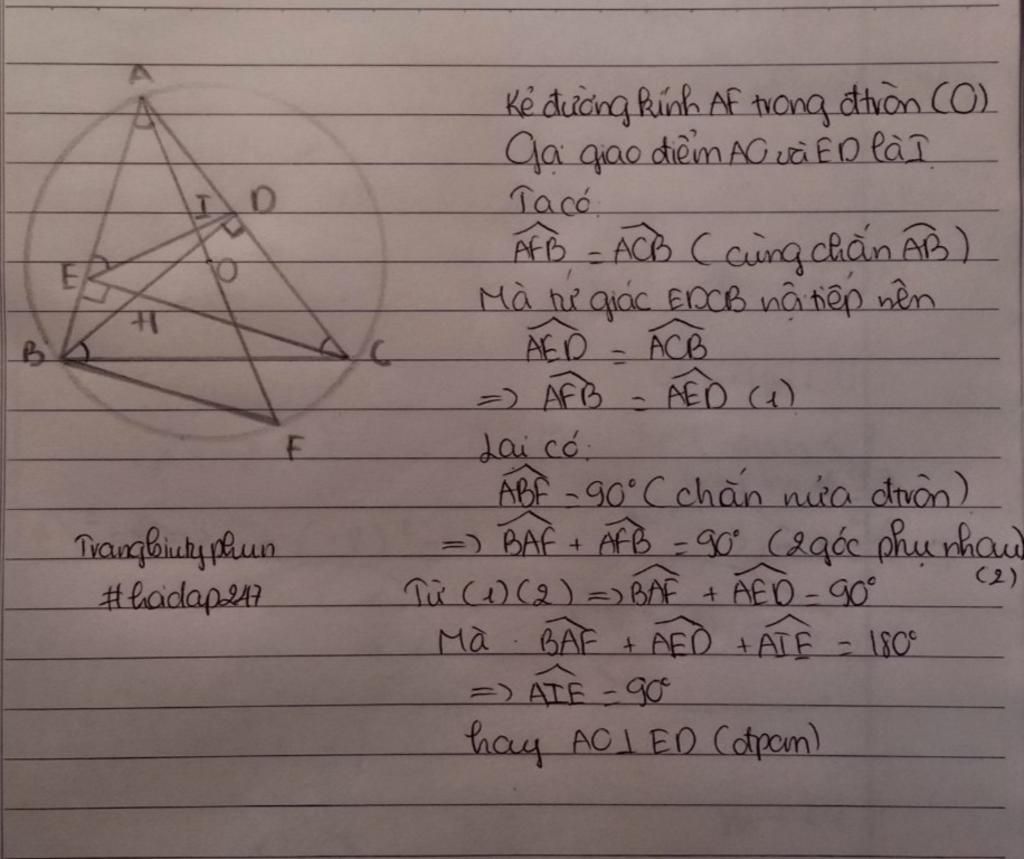 A
I D
E
O
H
B
C
F
Kẻ đường kính AF trong đtròn (O)
Gọi giao điểm AO và ED là I
Ta có:
AFB = ACB (cùng chắn AB)
Mà tứ giác EDCB nội tiếp nên
AED = ACB
=> AFB = AED (1)
Lại có:
ABF = 90° (chắn nửa đtròn)
=> BAF + AFB = 90° (2 góc phụ nhau)
(2)
Từ (1)(2) => BAF + AED = 90°
Mà BAF + AED + AIE = 180°
=> AIE = 90°
hay AO⊥ED (đpcm)
#hoidap247